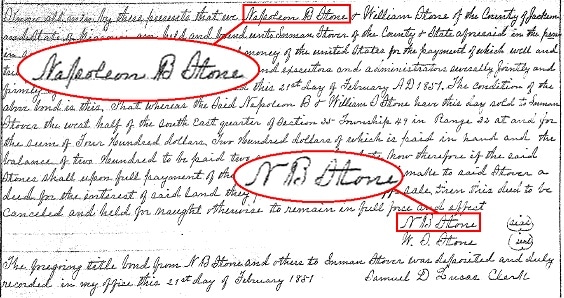 Know all men by these presents that we Napoleon B Stone & William Stone of the County of Jackson
and State of Missouri are held and bound unto Inman Stover of the County & State aforesaid in the
Napoleon B Stone
money of the United States for the payment of which well and
and executors and administrators severally jointly and
firmly this 21st day of February AD 1851. The condition of the
above bond is this, That whereas the said Napoleon B & William D Stone have this day sold to Inman
Stover the west half of the South East quarter of Section 35 Township 49 in Range 32 at and for
the sum of Four Hundred Dollars, Two Hundred Dollars of which is paid in hand and the
balance of two Hundred to be paid two now therefore if the said
Stones shall upon full payment of the make to said Stover a
N B Stone
deed for the interest of said land they sale, then this deed to be
canceled and held for naught otherwise to remain in full force and effect
N B Stone (seal)
W. D. Stone (seal)
The foregoing title bond from N B Stone and others to Inman Stover was deposited and duly
recorded in my office this 21st day of February 1851 Samuel D Lucas Clerk